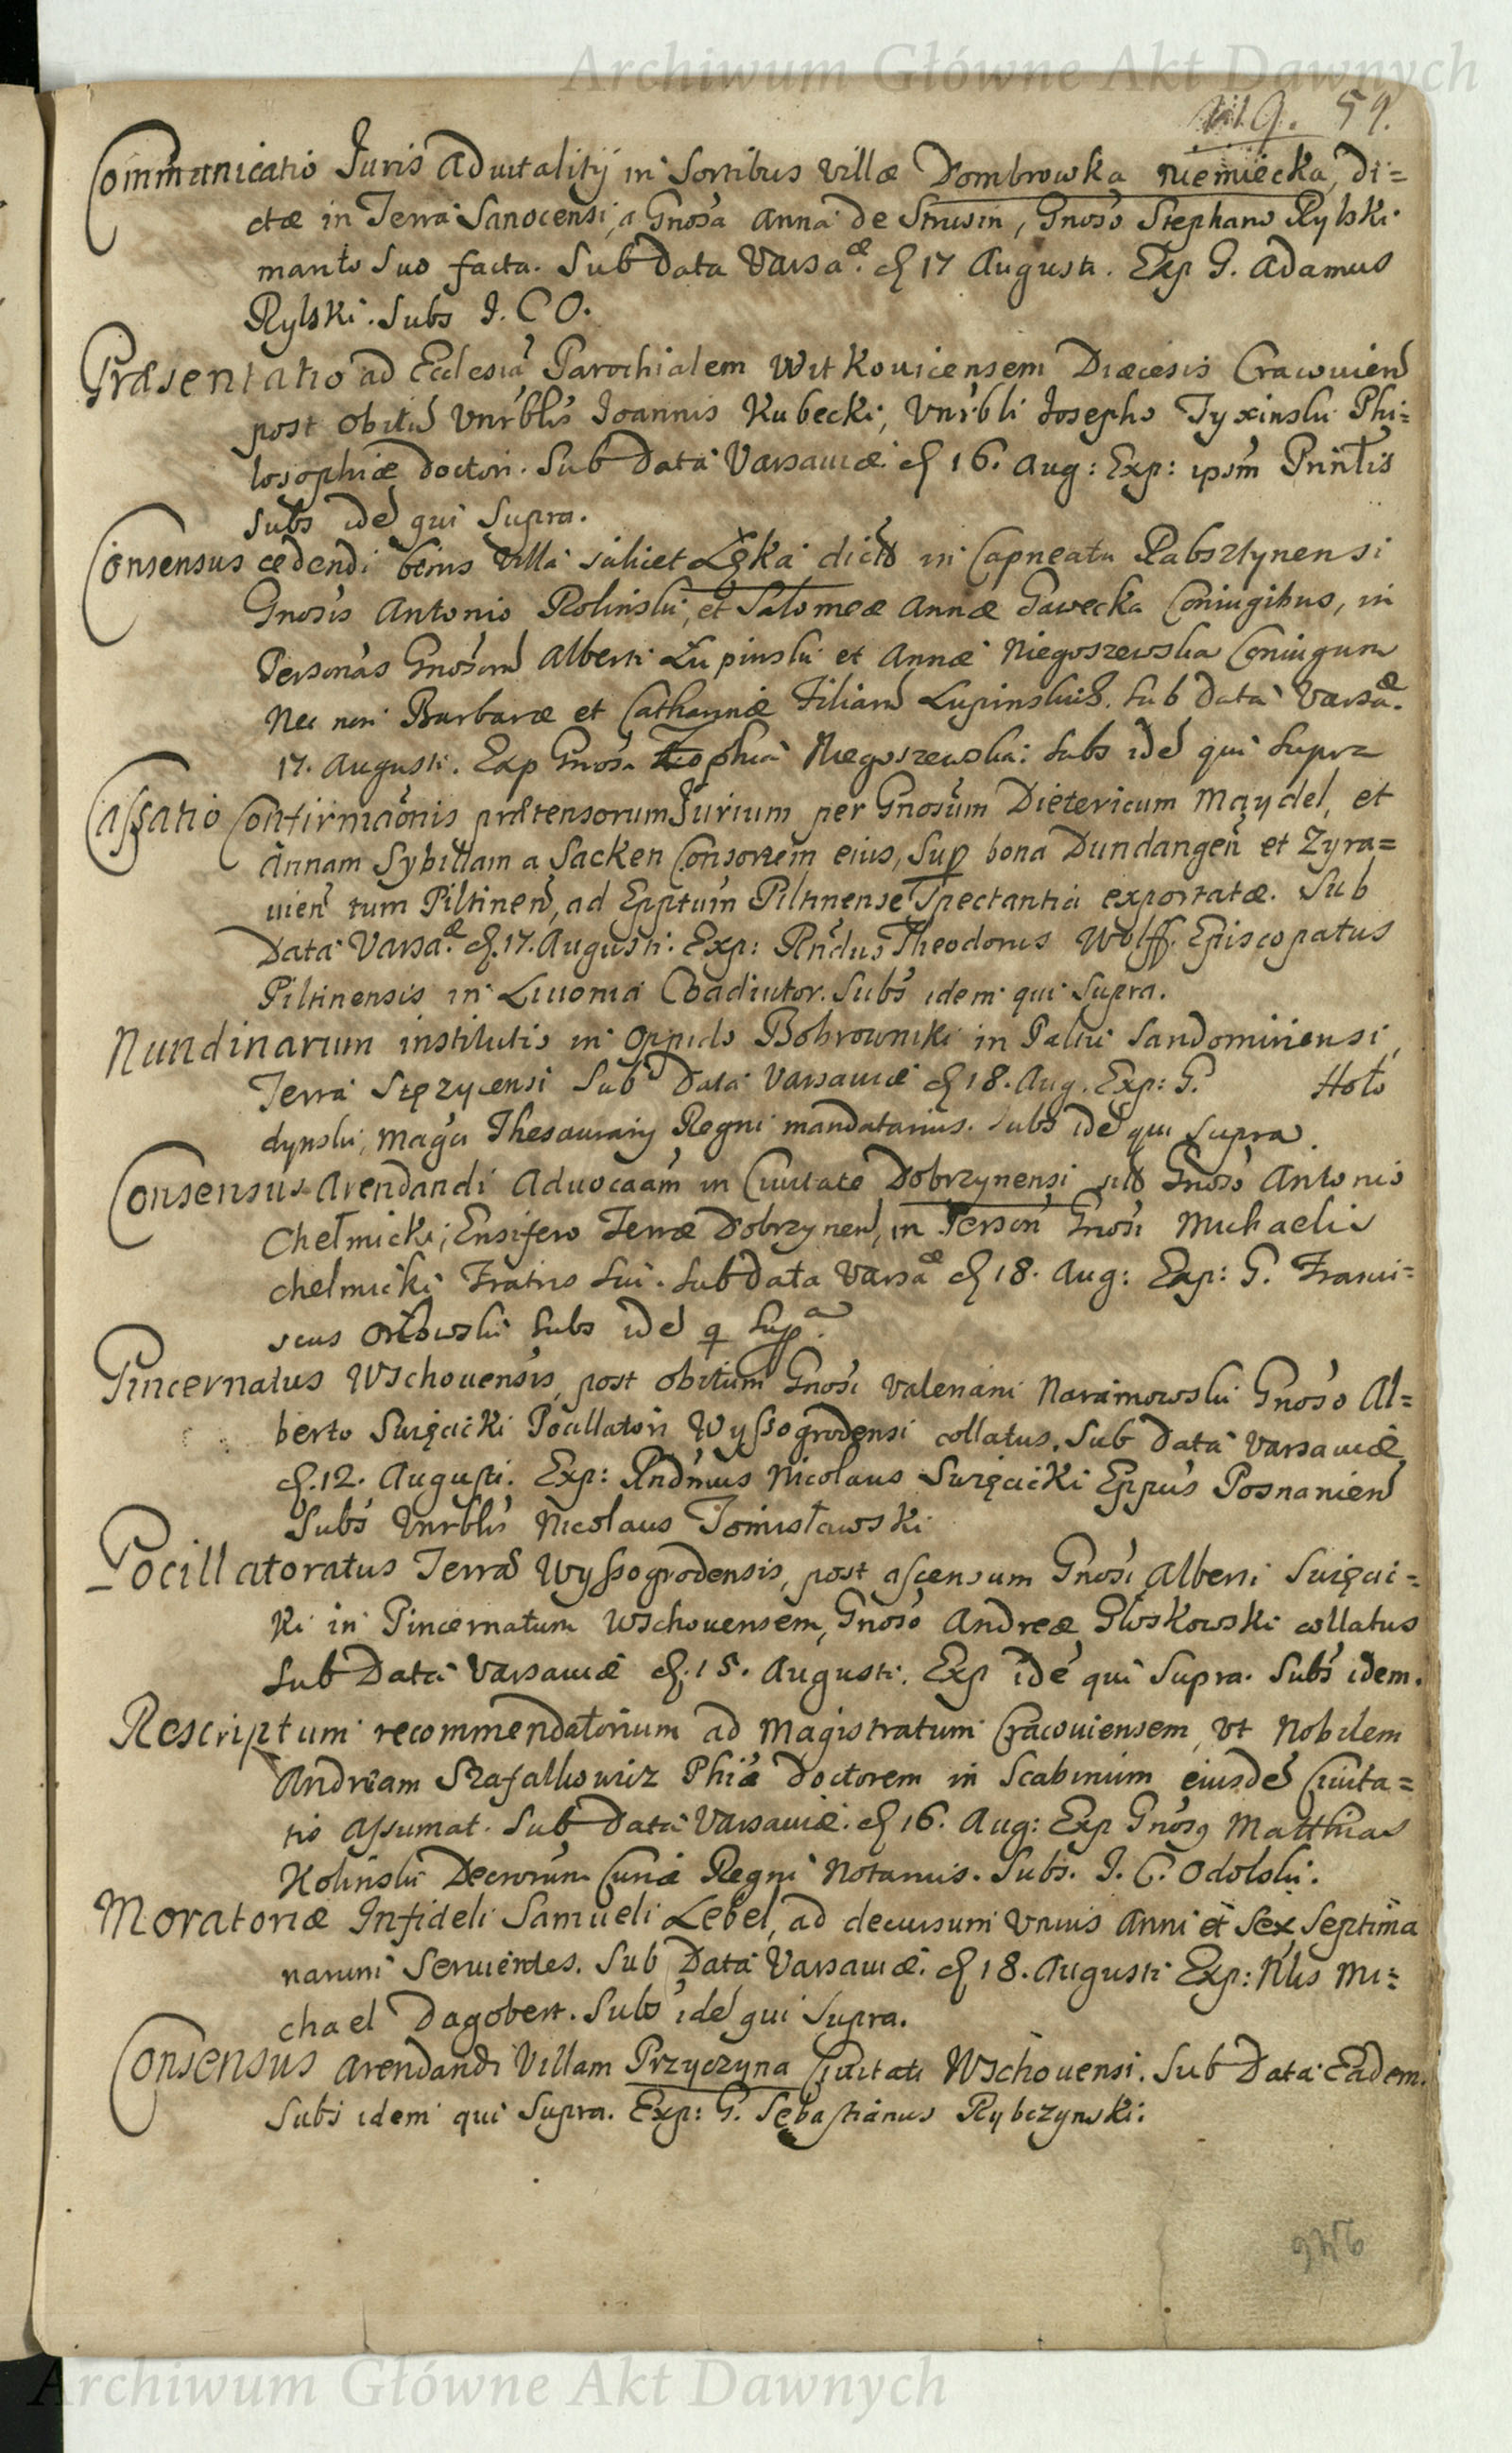 Archiwum Główne Akt Dawnych
59.
Communicatio Juris Advitalitij in Sortibus Villæ Dombrowka niemiecka, di=
ctæ in Terra Sanocensi, a Gnosa Anna de Strusin, Gnoso Stephano Rylski
marito suo facta. Sub Data Varsaæ. d 17 Augusti. Exp G. Adamus
Rylski. Subs I. C O.
Præsentatio ad Ecclesia Parochialem Witkovicensem Diæcesis Cracovien
post obitu Vnrblis Joannis Kubecki, Vnrbli Josepho Tyxinski Phi=
losophiæ Doctori. Sub Data Varsaviæ. d 16. Aug: Exp: ipsm Printis
Subs ide qui Supra.
Consensus cedendi bonis Villa scilicet Łęka dicto in Capneatu Rabsztynensi
Gnosis Antonio Rolinski, et Salomeæ Annæ Gawecka Coniugibus, in
Personas Gnosoru Alberti Łupinski et Annæ Niegoszewska Coniugum
Nec non Barbaræ et Catharinæ Filiaru Łupinskich. Sub Data Varsaæ.
17. Augusti. Exp Gnosa Zophia Niegoszewska: Subs ide qui Supra
Cassatio Confirmaonis prætensorum Jurium per Gnosum Dietericum Maydel, et
Annam Sybillam a Sacken Consortem eius, Sup bona Dundangen et Zyra=
vien tum Piltinen, ad Epptum Piltinense Spectantia exportatæ. Sub
Data Varsaæ. d. 17. Augusti. Exp: Rndus Theodorus Wolff. Episcopatus
Piltinensis in Livonia Coadiutor. Subs idem qui Supra.
Nundinarum institutio in Oppido Bobrowniki in Paltu Sandomiriensi,
Terra Stęzycensi Sub Data Varsaviæ d 18. Aug. Exp: G. Hoło
dynski, Magci Thesaurarij Regni mandatarius. Subs ide qui Supra.
Consensus Arendandi Advocaam in Civitate Dobrzynensi Gnoso Antonio
Chełmicki, Ensifero Terræ Dobrzynen, in Person Gnosi Michaelis
Chełmicki Fratris Sui. Sub Data Varsaæ d 18. Aug: Exp: G. Franci=
scus Orłowski Subs ide q Supa.
Pincernatus Wschovensis, post obitum Gnosi Valeriani Naramowski Gnoso Al=
berto Swięcicki Pocillatori Wyssogrodensi collatus. Sub Data Varsaviæ
d. 12. Augusti. Exp: Rndmus Nicolaus Swięcicki Eppus Posnanien
Subs Vnrblis Nicolaus Tomisławski
Pocillatoratus Terræ Wyssogrodensis, post ascensum Gnosi Alberti Swięcic=
ki in Pincernatum Wschovensem, Gnoso Andreæ Głoskowski collatus
Sub Data Varsaviæ d. 15. Augusti. Exp ide qui Supra. Subs idem.
Rescriptum recommendatorium ad Magistratum Cracoviensem, vt Nobilem
Andream Szafałkowicz Phiæ Doctorem in Scabinum eiusde Civita=
tis Assumat. Sub Data Varsaviæ. d 16. Aug: Exp Gnosq Matthias
Kolinski Decrorum Curiæ Regni Notarius. Subs. I. C. Odolski.
Moratoriæ Infideli Samueli Lebel, ad decursum Vnius Anni et Sex Septima
narum Servientes. Sub Data Varsaviæ. d 18. Augusti Exp: Nlis Mi=
chael Dagobert. Subs ide qui Supra.
Consensus Arendandi Villam Przyczyna Civitati Wschovensi. Sub Data Eadem.
Subs idem qui Supra. Exp: G. Sebastianus Rybczynski:
Archiwum Główne Akt Dawnych